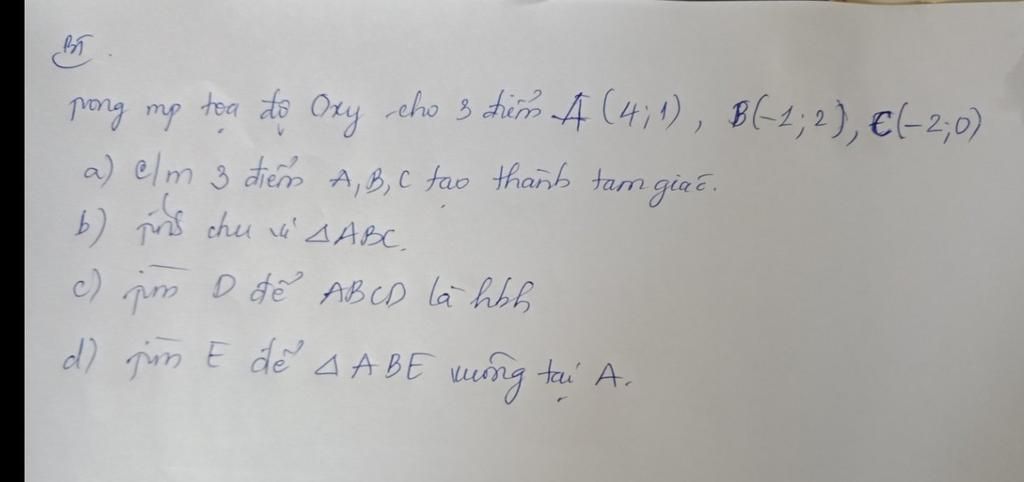 BT.
Trong mp tọa độ Oxy cho 3 điểm A(4;1), B(-1;2), C(-2;0)
a) c/m 3 điểm A,B,C tạo thành tam giác.
b) Tính chu vi ΔABC.
c) Tìm D để ABCD là hbh
d) Tìm E để ΔABE vuông tại A.